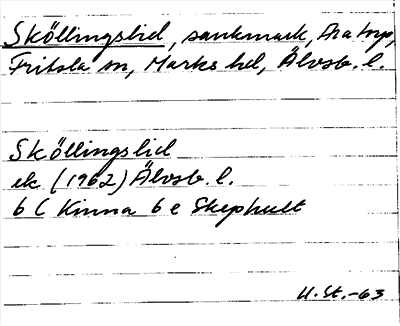 Sköllingslid, sankmark, Aratorp,
Fritsla sn, Marks hd, Älvsb. l.
Sköllingslid
ek. (1962) Älvsb. l.
6 C Kinna 6 e Skephult
U. St. -63